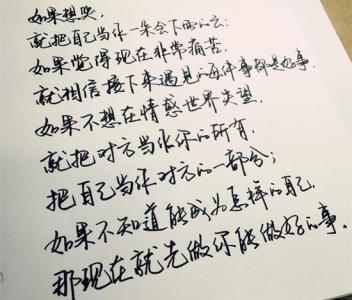 如果想哭,
就把自己当作一朵会下雨的云;
如果觉得现在非常痛苦,
就相信接下来遇见的每件事都是好事.
如果不想在情感世界失望,
就把对方当作你的所有,
把自己当作对方的一部分;
如果不知道能成为怎样的自己,
那现在就先做你能做好的事.